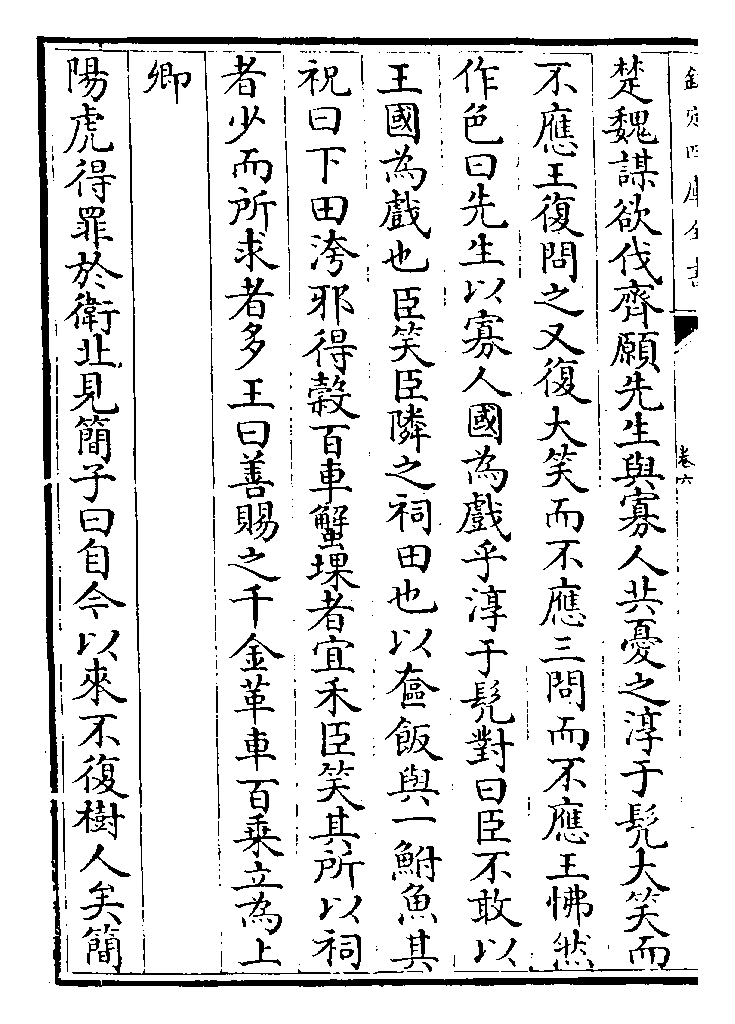 欽定四庫全書
卷六
楚魏謀欲伐齊願先生與寡人共憂之淳于髡大笑而
不應王復問之又復大笑而不應三問而不應王怫然
作色曰先生以寡人國為戲乎淳于髡對曰臣不敢以
王國為戲也臣笑臣隣之祠田也以奩飯與一鮒魚其
祝曰下田洿邪得穀百車蟹堁者宜禾臣笑其所以祠
者少而所求者多王曰善賜之千金革車百乗立為上
卿
陽虎得罪於衛北見簡子曰自今以來不復樹人矣簡